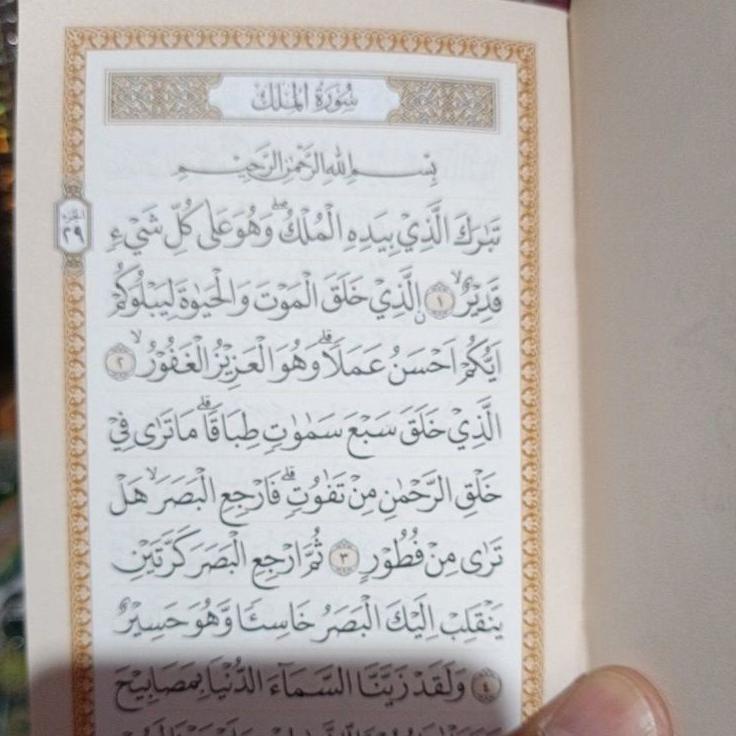 سُوْرَةُ الْمُلْكِ
بِسْمِ اللّٰهِ الرَّحْمٰنِ الرَّحِيْمِ
الجزء
٢٩
تَبٰرَكَ الَّذِيْ بِيَدِهِ الْمُلْكُ ۖ وَهُوَ عَلٰى كُلِّ شَيْءٍ
قَدِيْرٌ ۙ ١ الَّذِيْ خَلَقَ الْمَوْتَ وَالْحَيٰوةَ لِيَبْلُوَكُمْ
اَيُّكُمْ اَحْسَنُ عَمَلًا ۗ وَهُوَ الْعَزِيْزُ الْغَفُوْرُ ۙ ٢
الَّذِيْ خَلَقَ سَبْعَ سَمٰوٰتٍ طِبَاقًا ۗ مَا تَرٰى فِيْ
خَلْقِ الرَّحْمٰنِ مِنْ تَفٰوُتٍ ۗ فَارْجِعِ الْبَصَرَ ۙ هَلْ
تَرٰى مِنْ فُطُوْرٍ ٣ ثُمَّ ارْجِعِ الْبَصَرَ كَرَّتَيْنِ
يَنْقَلِبْ اِلَيْكَ الْبَصَرُ خَاسِئًا وَّهُوَ حَسِيْرٌ
٤ وَلَقَدْ زَيَّنَّا السَّمَاۤءَ الدُّنْيَا بِمَصَابِيْحَ